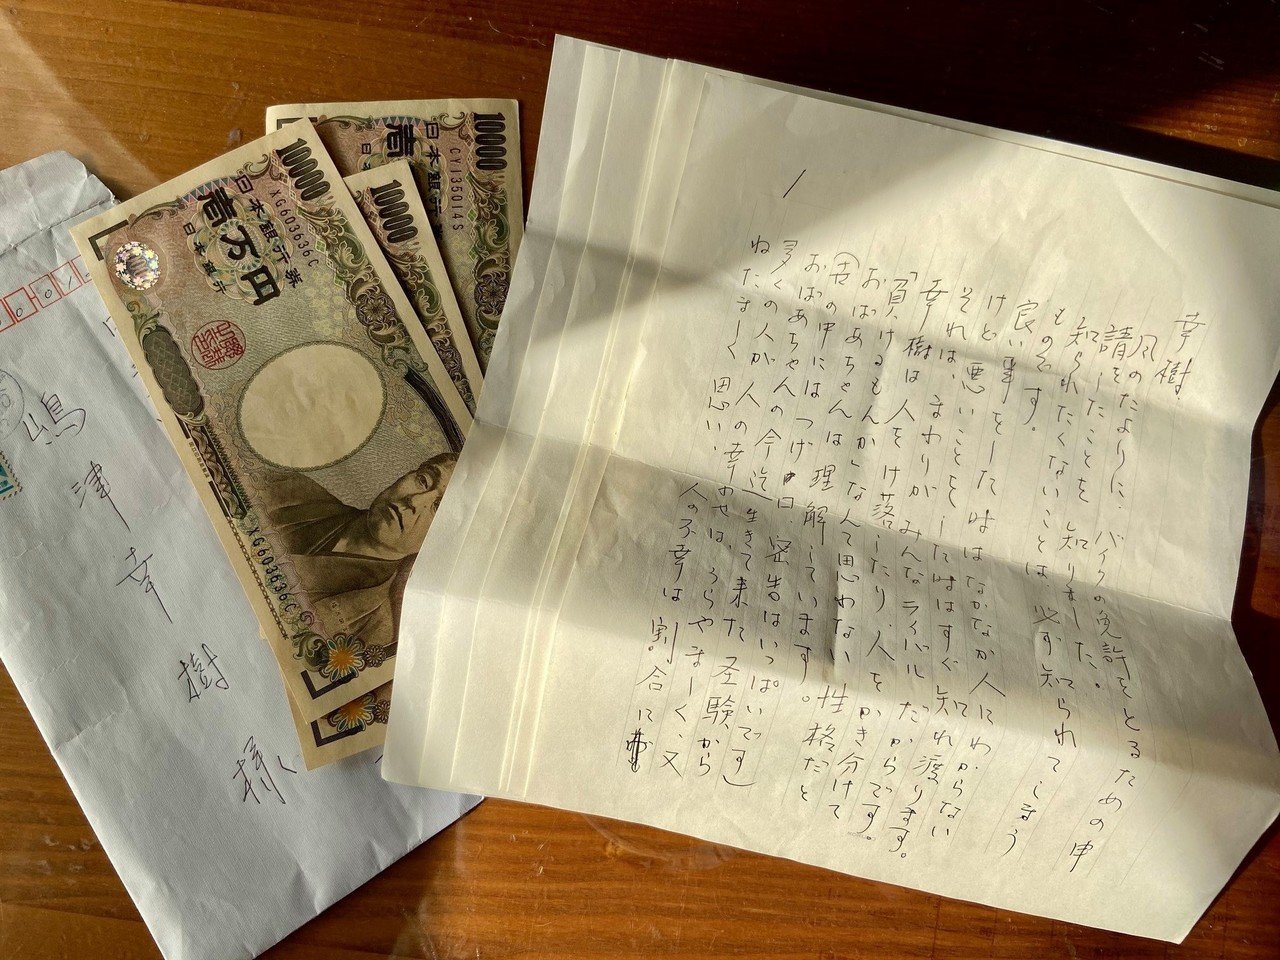 1
幸樹
風のたよりに、バイクの免許をとるための申
請をしたことを知りました。
知られたくないことは、必ず知られてしまう
ものです。
良い事をした時はなかなか人にわからない
けど悪いことをした時はすぐ知れ渡ります。
それは、まわりがみんなライバルだからです。
幸樹は人をけ落したり、人をかき分けて
「負けるもんか」なんて思わない性格だと
おばあちゃんは理解しています。
の中にはつげ口、密告はいっぱいです)
おばあちゃんの今迄生きて来た圣験から
多くの人が人の幸わせは、うらやましく、又
ねたましく思い、人の不幸は割合に
嶋津幸樹様
10000
日本銀行券
XG603636C
壱万円
日本銀行
XG603636C
10000
10000
日本銀行
CY135014S
壱